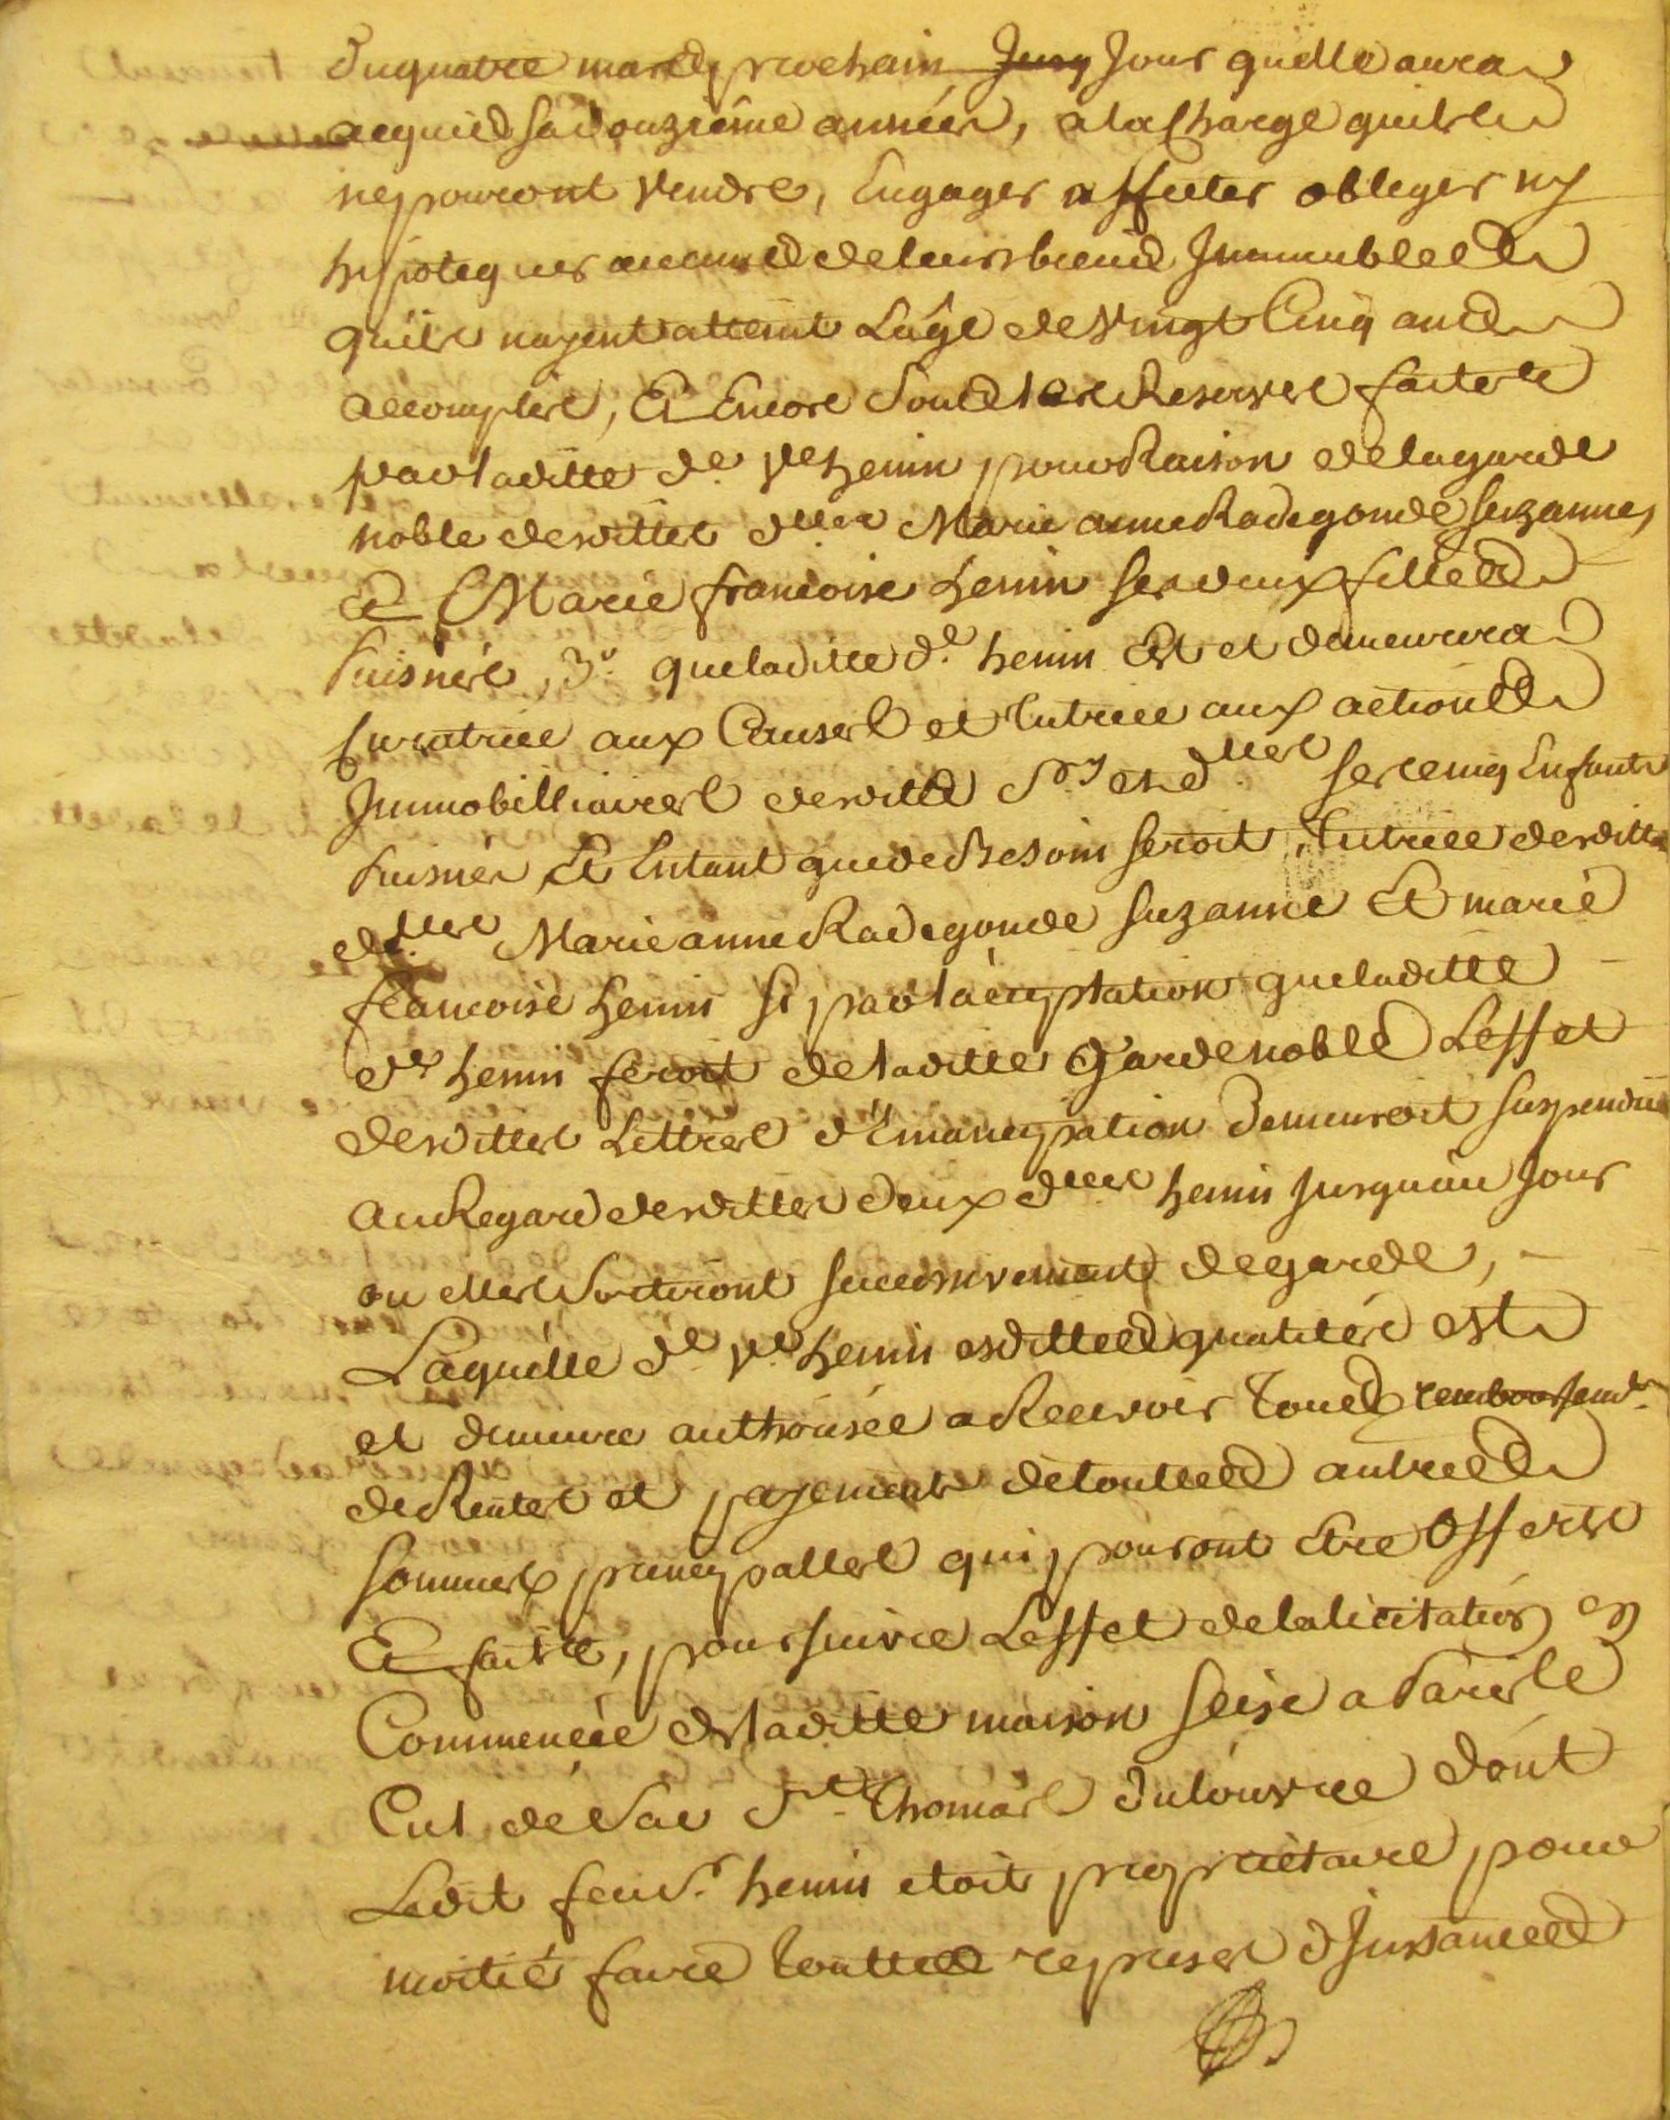 du quatre mars prochain Jour quelle aura
acquis sa douzième année, ala Charge quils
ne pouront Vendre, Engager affecter obliger ny
hipotequer aucuns de leurs biens Immeubles
quils nayent atteint Lâge de Vingt Cinq ans
accomplis, Et Encore sous les Reserves faites
par laditte de. ve henin pour Raison de la garde
noble desdittes dlles Marie anne Radegonde Suzanne
Et Marie francoise henin ses deux filles
Puisnés, 3º. que laditte de. henin Est et demeurera
Curatrice aux Causes et tutrice aux actions
Immobilliaires desdits Srs et dlles ses cinq Enfants
Puisnés Et Entant que de Besoin seroit, tutrice desdittes
dlles Marie anne Radegonde Suzanne Et marie
francoise henin si par lacceptation que laditte
de henin feroit de laditte Garde noble Leffet
desdittes Lettres d'Emancipation demeuroit suspendu
au Regard desdittes deux dlles henin Jusquau Jour
ou elles sortiront successivement de garde,
Laquelle de ve henin esdittes qualités est
et demeure authorisée a Recevoir tous remboursemts.
de Rentes et payements de touttes autres
sommes principalles qui pouront Etre offerts
Et faits, poursuivre Leffet de la licitation
Commencée de laditte maison scise a Paris le
Cul de Sac St. Thomas du louvre dont
Ledit feu Sr. henin etoit proprietaire pour
moitié faire touttes reprises d'Instances